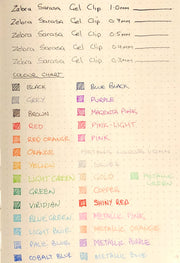 Zebra Sarasa Gel Clip 1.0mm
Zebra Sarasa Gel Clip 0.7mm
Zebra Sarasa Gel Clip 0.5mm
Zebra Sarasa Gel Clip 0.4mm
Zebra Sarasa Gel Clip 0.3mm
COLOUR CHART
BLACK BLUE BLACK
GREY PURPLE
BROWN MAGENTA PINK
RED PINK-LIGHT
RED ORANGE PINK
ORANGE
YELLOW SILVER
LIGHT GREEN GOLD METALLIC GREEN
GREEN COPPER
VIRIDIAN SHINY RED
BLUE GREEN METALLIC PINK
LIGHT BLUE METALLIC ORANGE
PALE BLUE METALLIC PURPLE
COBALT BLUE METALLIC BLUE